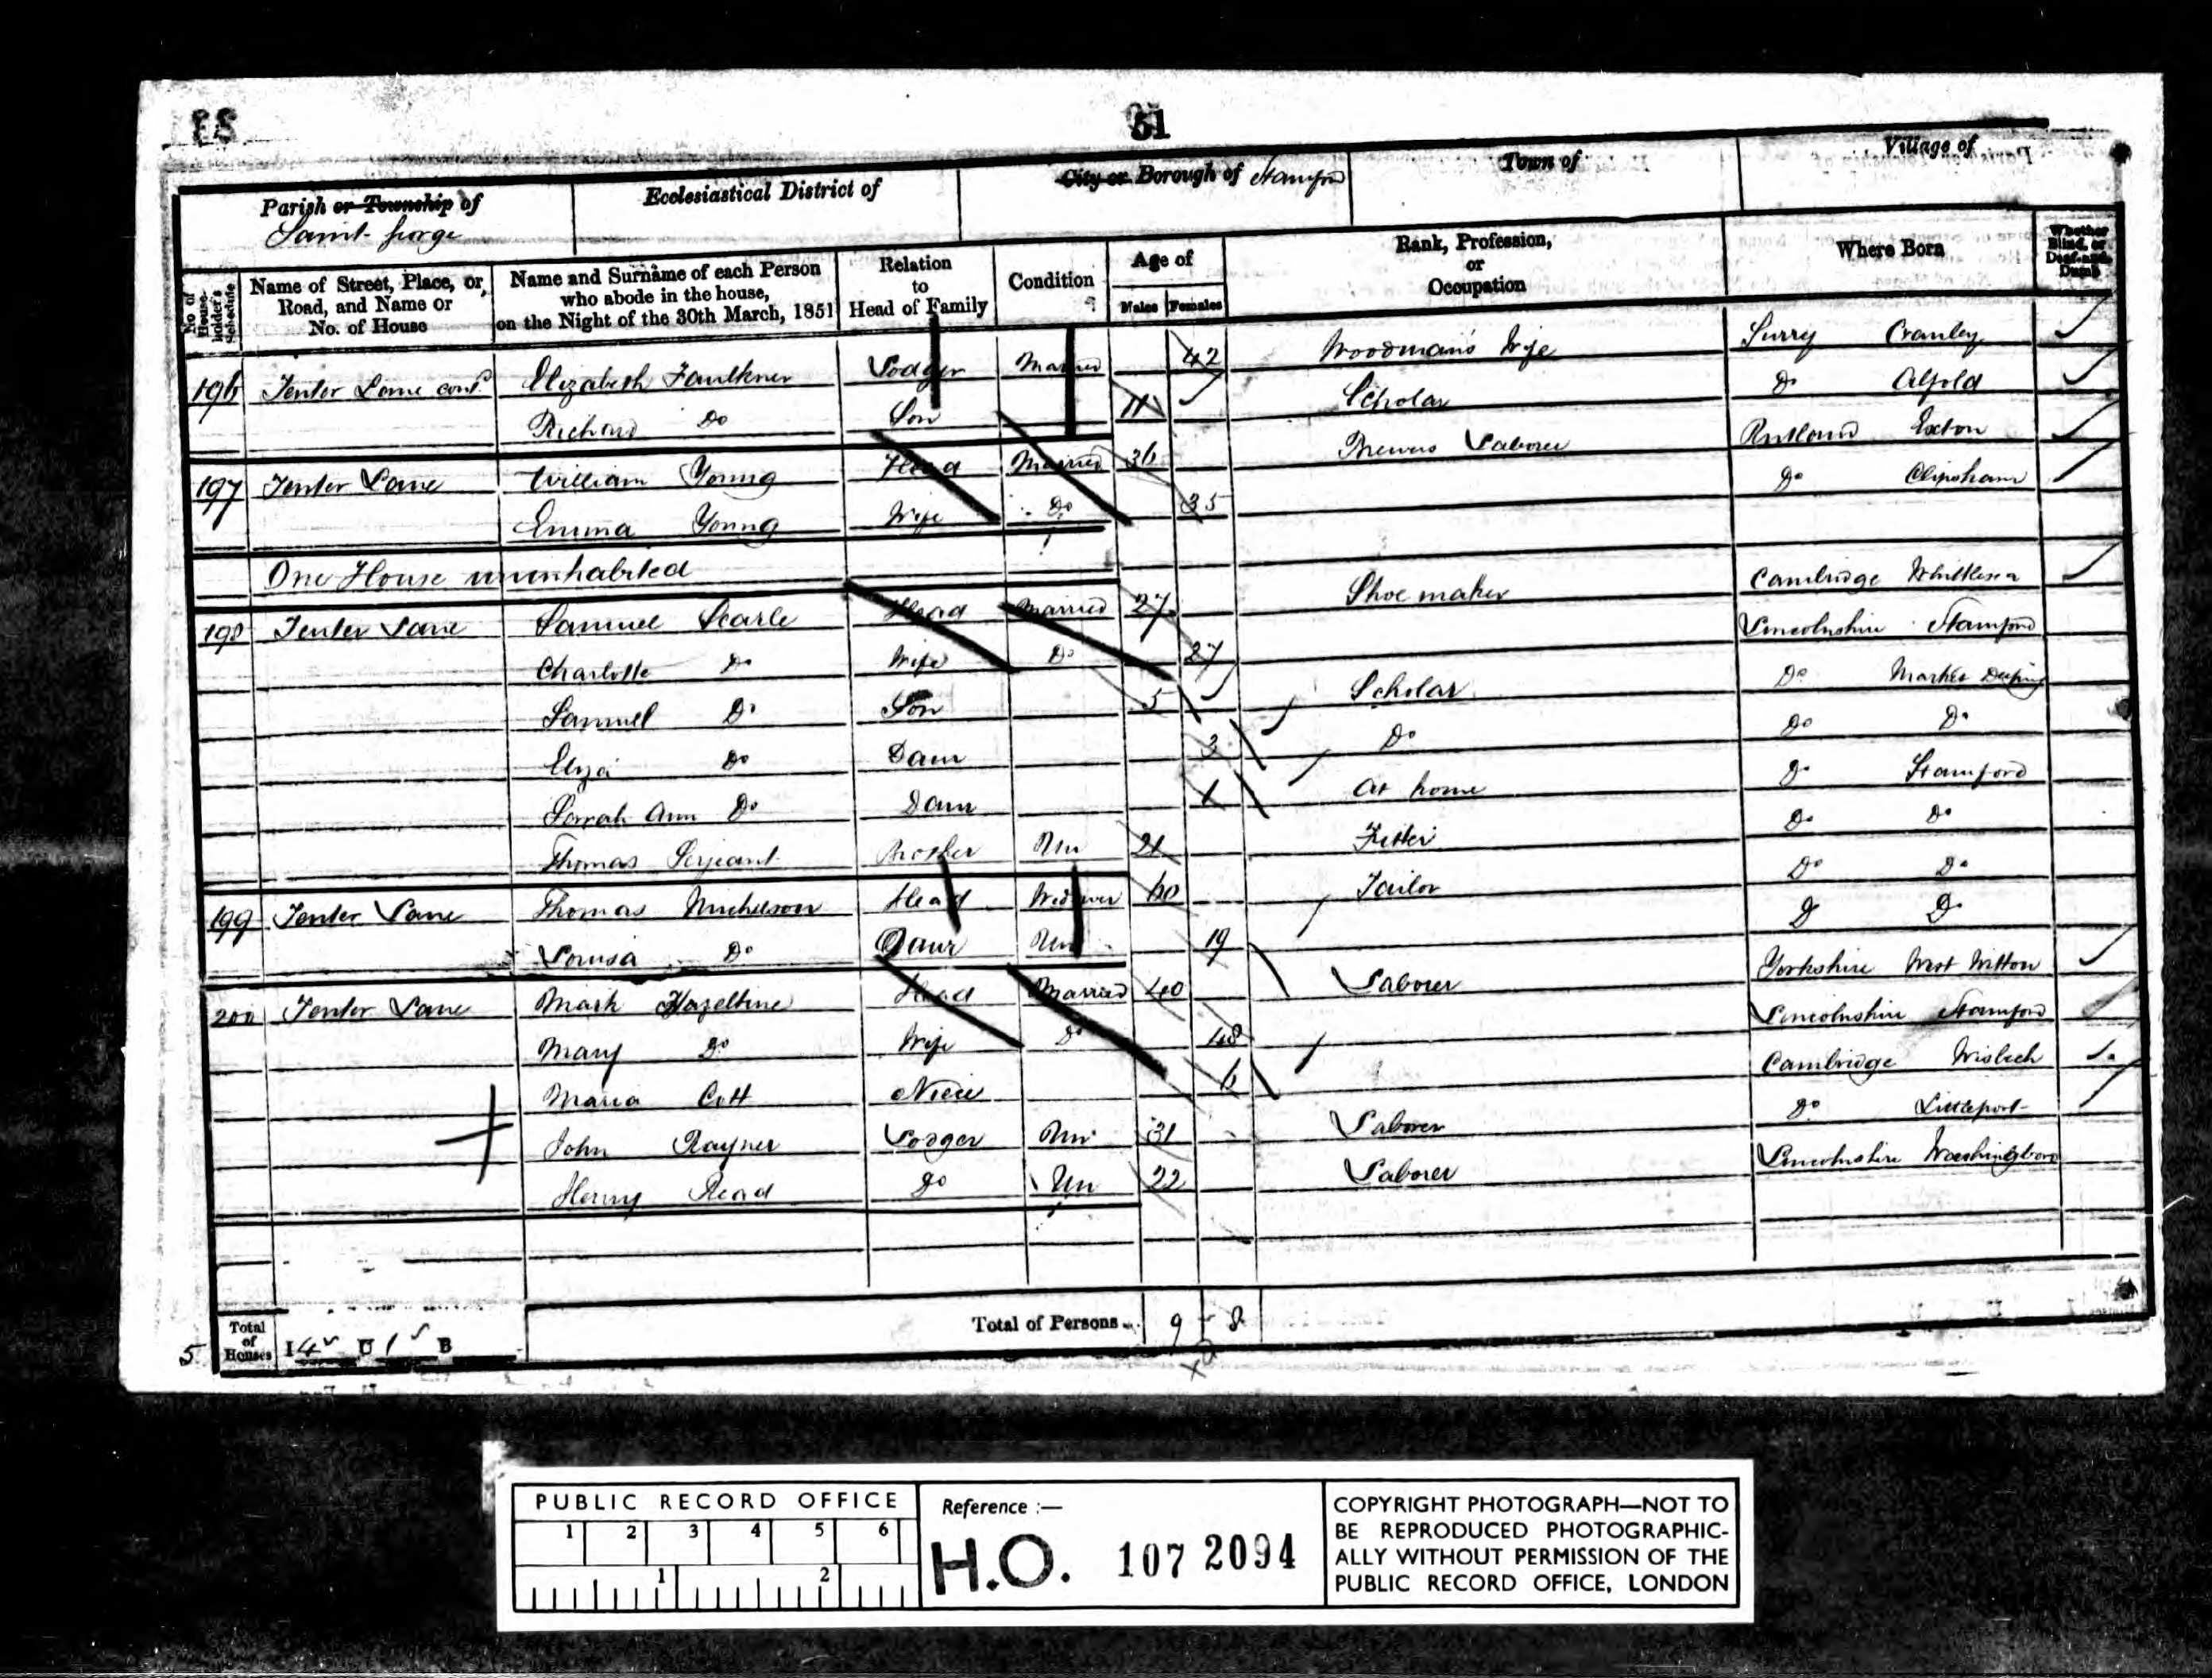 51
Parish or Township of
Saint George
Ecclesiastical District of
City or Borough of Stamford
Town of
Village of
No of House-holder's Schedule
Name of Street, Place, or Road, and Name or No. of House
Name and Surname of each Person who abode in the house, on the Night of the 30th March, 1851
Relation to Head of Family
Condition
Age of
Males Females
Rank, Profession, or Occupation
Where Born
Whether Blind, or Deaf-and-Dumb
196 Tenter Lane cont.d Elizabeth Faulkner Lodger Married 42 Woodman's Wife Surry Cranley
Richard Do Son 11 Scholar Do Alfold
197 Tenter Lane William Young Head Married 36 Brewers Laborer Rutland Exton
Emma Young Wife Do 35 Do Clipsham
One House uninhabited
198 Tenter Lane Samuel Searle Head Married 27 Shoe maker Cambridge Whittlesea
Charlotte Do Wife Do 27 Lincolnshire Stamford
Samuel Do Son 5 Scholar Do Market Deeping
Eliza Do Daur 3 Do Do Do
Sarah Ann Do Daur 1 At home Do Stamford
Thomas Serjeant Brother Un 21 Do Do
199 Tenter Lane Thomas Head Widower 60 Tailor Do Do
Louisa Do Daur Un 19 Do Do
200 Tenter Lane Mark Hazeltine Head Married 40 Laborer Yorkshire West Witton
Mary Do Wife Do 48 Lincolnshire Stamford
Maria Cott Niece 6 Cambridge Wisbech
John Rayner Lodger Un 31 Laborer Do Littleport
Henry Read Do Un 22 Laborer Lincolnshire Washingboro
Total of Houses I 4 U 1 B
Total of Persons 9 8
5
PUBLIC RECORD OFFICE
1 2 3 4 5 6
1 2
Reference :—
H.O. 107 2094
COPYRIGHT PHOTOGRAPH—NOT TO
BE REPRODUCED PHOTOGRAPHIC-
ALLY WITHOUT PERMISSION OF THE
PUBLIC RECORD OFFICE, LONDON